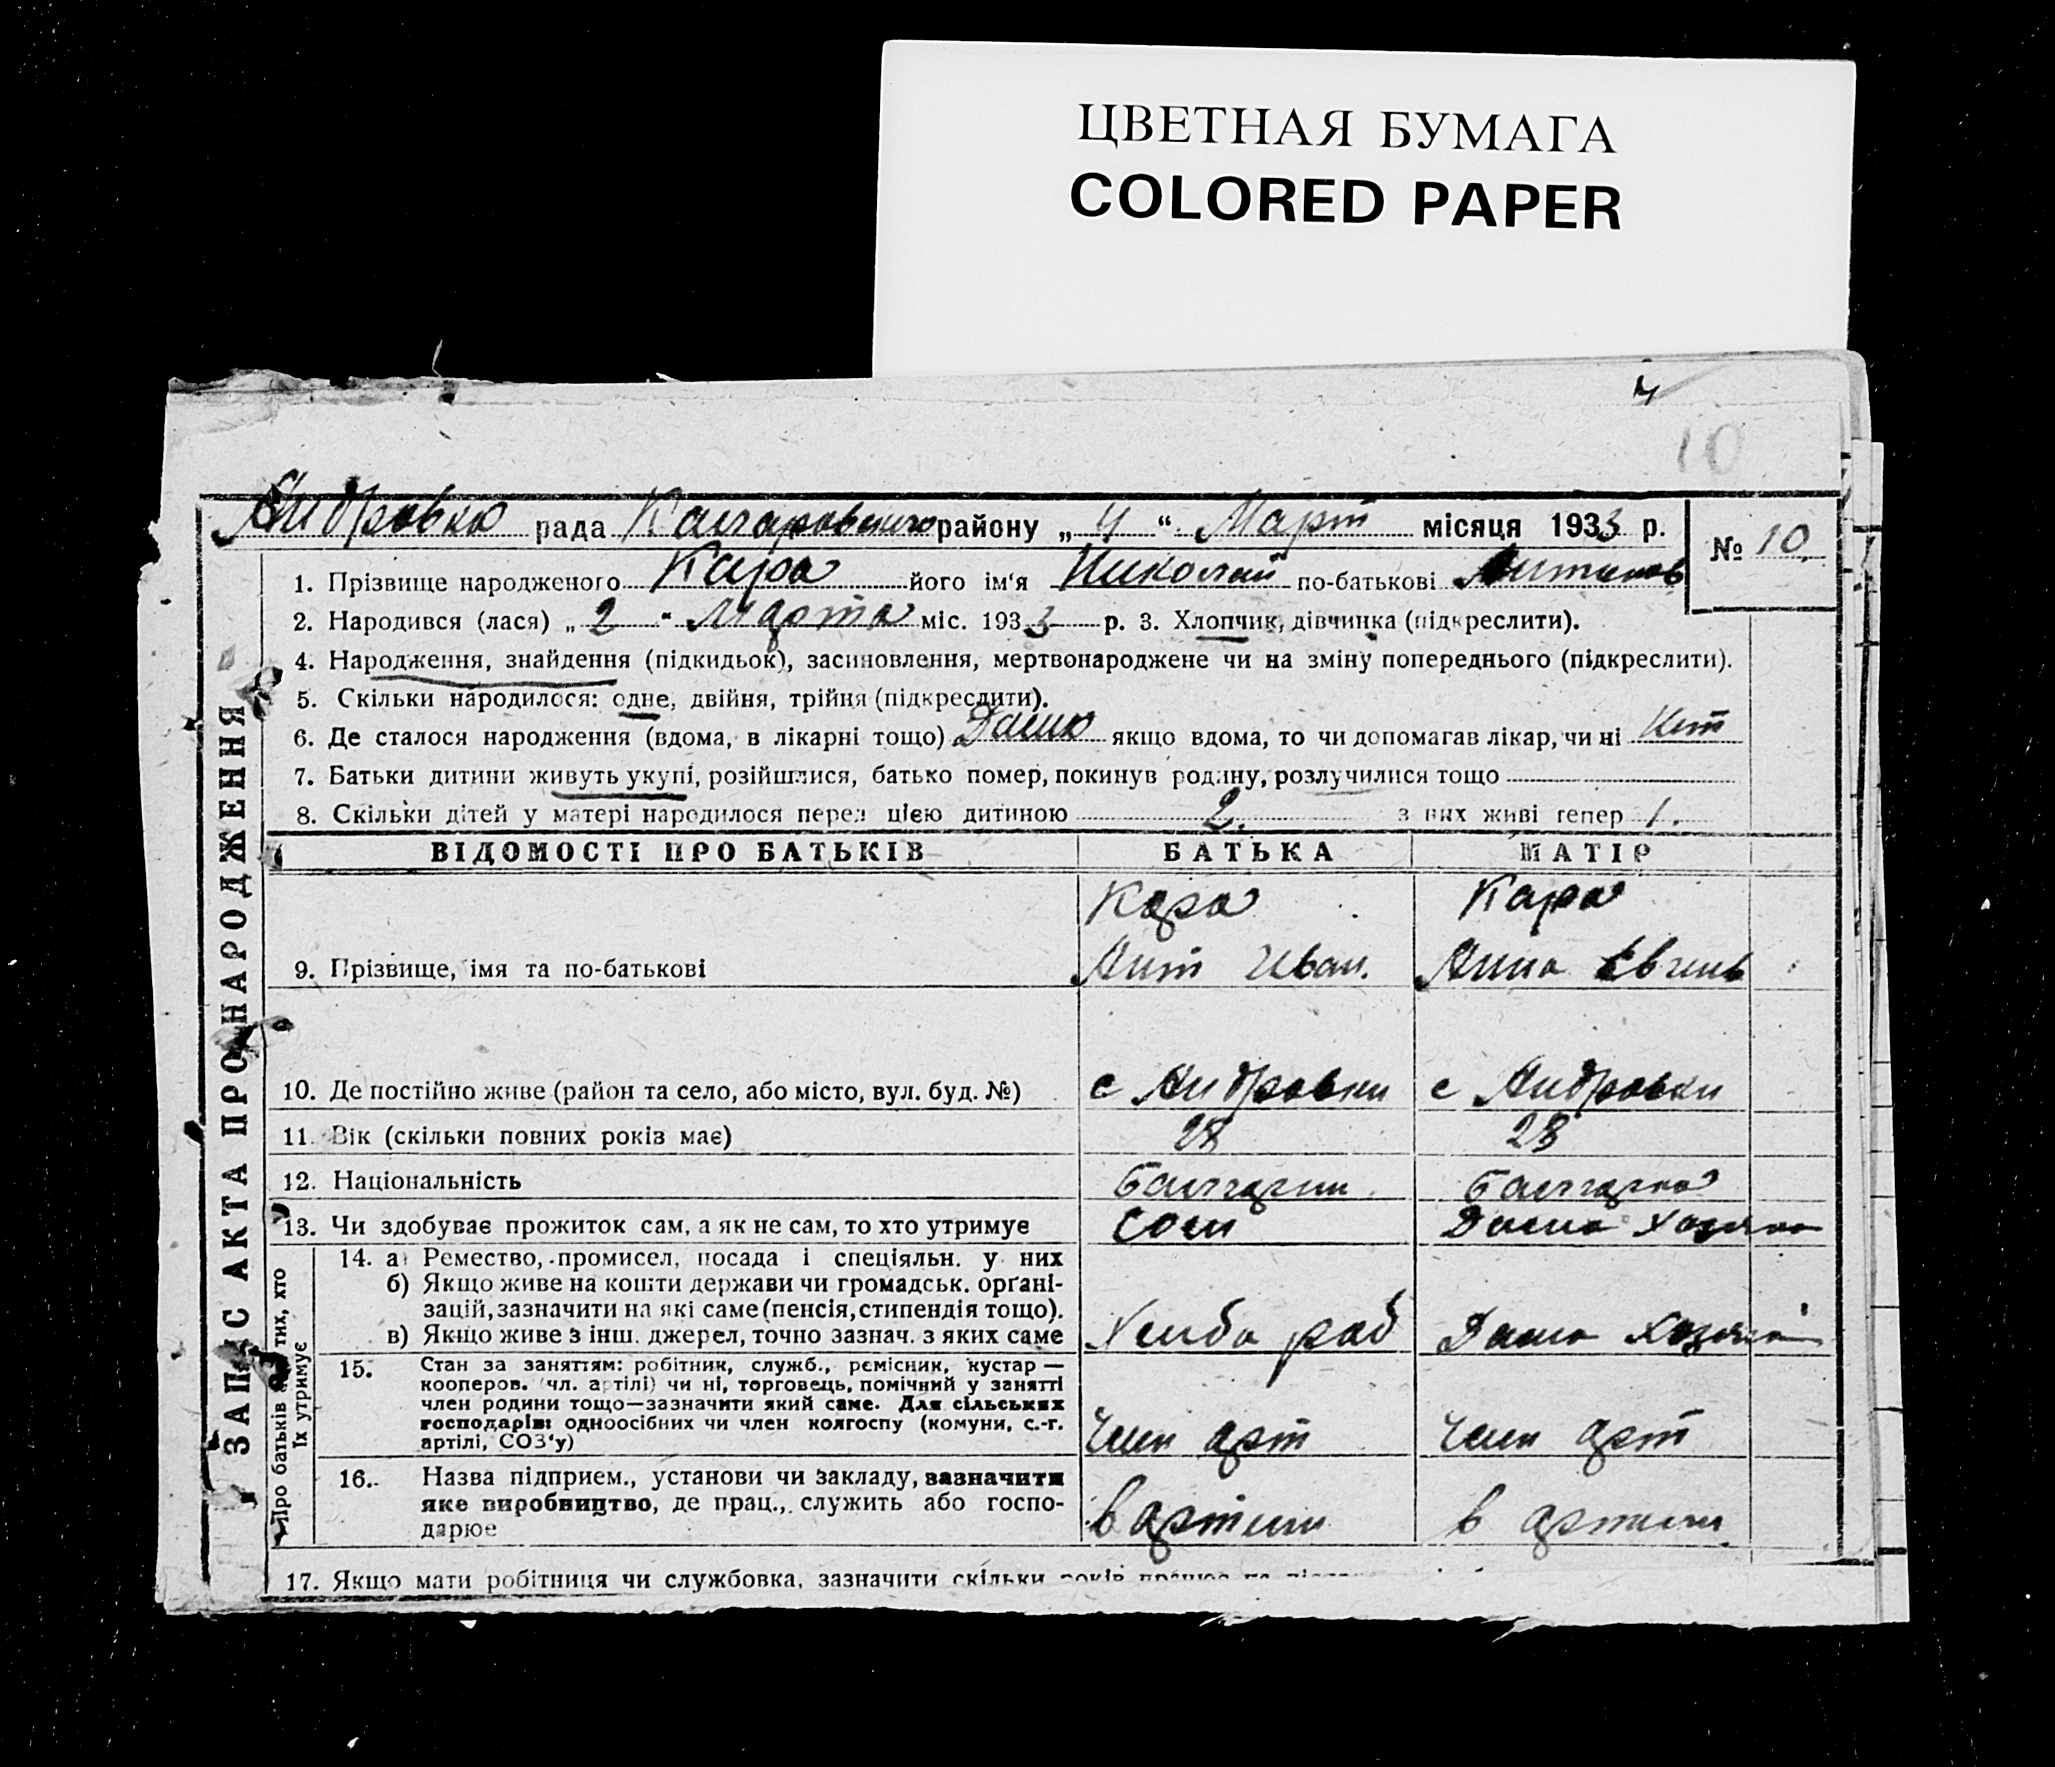 ЦВЕТНАЯ БУМАГА
COLORED PAPER
4
10
Андровка рада Коларовского району „4“ Март місяця 1933 р.
№ 10
1. Прізвище народженого Кара його ім'я Николай по-батькові Антонов
2. Народився (лася) „2“ Марта міс. 1933 р. 3. Хлопчик, дівчинка (підкреслити).
4. Народження, знайдення (підкидьок), засиновлення, мертвонароджене чи на зміну попереднього (підкреслити).
5. Скільки народилося: одне, двійня, трійня (підкреслити).
6. Де сталося народження (вдома, в лікарні тощо) Дома якщо вдома, то чи допомагав лікар, чи ні Нет
7. Батьки дитини живуть укупі, розійшлися, батько помер, покинув родину, розлучилися тощо
8. Скільки дітей у матері народилося перед цією дитиною 2. з них живі тепер 1.
ЗАПИС АКТА ПРО НАРОДЖЕННЯ
ВІДОМОСТІ ПРО БАТЬКІВ БАТЬКА МАТІР
Кара Кара
9. Прізвище, імя та по-батькові Ант Иван. Анна
10. Де постійно живе (район та село, або місто, вул. буд. №) с Андровки с Андровки
11. Вік (скільки повних років має) 28 28
12. Національність Болгарин Болгарка
13. Чи здобуває прожиток сам, а як не сам, то хто утримує Сам Дома хозяйка
Про батьків або тих, хто їх утримує
14. а) Ремество, промисел, посада і спеціяльн. у них
б) Якщо живе на кошти держави чи громадськ. орґані-
зацій, зазначити на які саме (пенсія, стипендія тощо).
в) Якщо живе з інш. джерел, точно зазнач. з яких саме Хлеба роб Дома хозяйка
15. Стан за заняттям: робітник, служб., ремісник, кустар —
кооперов. (чл. артілі) чи ні, торговець, помічний у занятті
член родини тощо—зазначити який саме. Для сільських
господарів: одноосібних чи член колгоспу (комуни, с.-г.
артілі, СОЗ'у) Член арт Член арт
16. Назва підприєм., установи чи закладу, зазначити
яке виробництво, де прац., служить або госпо-
дарює в артели в артели
17. Якщо мати робітниця чи службовка, зазначити скільки років працює